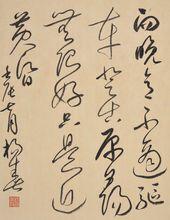 向晚意不適驅
車登古原夕陽
無限好只是近
黃昏
七月